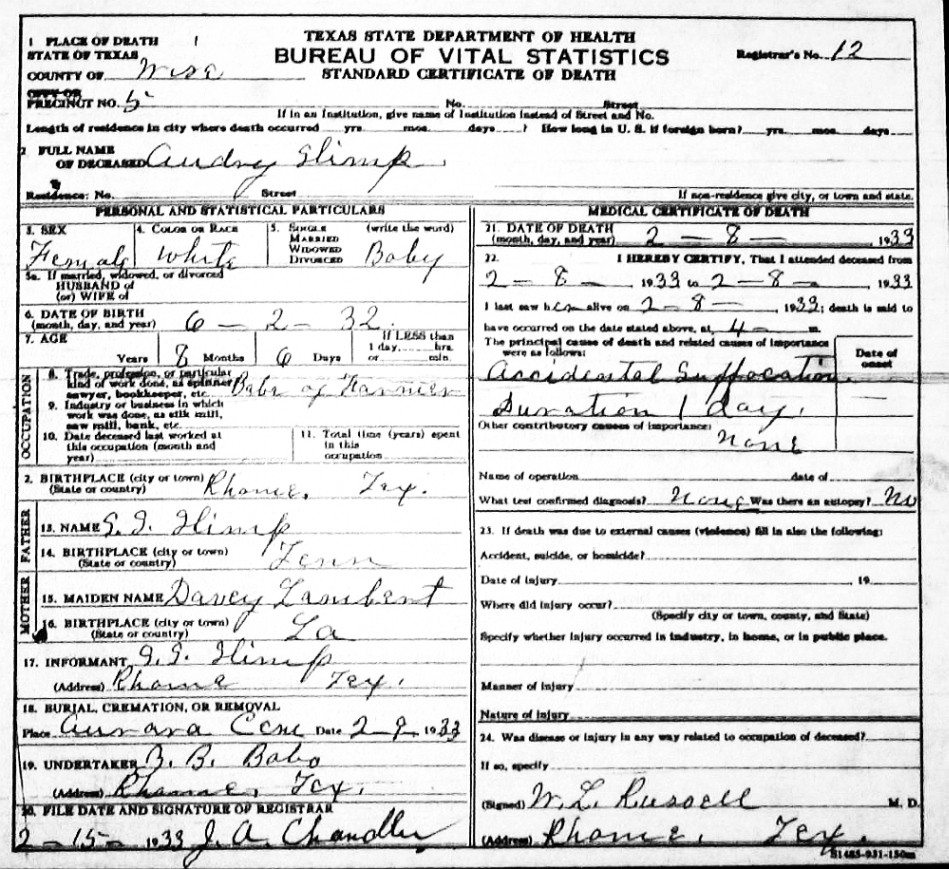 TEXAS STATE DEPARTMENT OF HEALTH
BUREAU OF VITAL STATISTICS
STANDARD CERTIFICATE OF DEATH
Registrar's No. 12
1 PLACE OF DEATH
STATE OF TEXAS
COUNTY OF Wise
CITY OR
PRECINCT NO. 5 No. Street
If in an Institution, give name of Institution instead of Street and No.
Length of residence in city where death occurred yrs. mos. days ? How long in U. S. if foreign born? yrs. mos. days
2 FULL NAME
OF DECEASED Audry Slimp
Residence: No. Street If non-residence give city, or town and state.
PERSONAL AND STATISTICAL PARTICULARS
3. SEX Female
4. COLOR OR RACE White
5. SINGLE MARRIED WIDOWED DIVORCED (write the word) Baby
5a. If married, widowed, or divorced
HUSBAND of
(or) WIFE of
6. DATE OF BIRTH
(month, day, and year) 6 - 2 - 32.
7. AGE Years 8 Months 6 Days If LESS than 1 day, hrs. or min.
OCCUPATION
8. Trade, profession, or particular
kind of work done, as spinner
sawyer, bookkeeper, etc. Babe of Farmer
9. Industry or business in which
work was done, as silk mill,
saw mill, bank, etc.
10. Date deceased last worked at
this occupation (month and
year)
11. Total time (years) spent
in this
occupation
2. BIRTHPLACE (city or town) Rhome, Tex.
(State or country)
FATHER
13. NAME Slimp
14. BIRTHPLACE (city or town)
(State or country) Tenn
MOTHER
15. MAIDEN NAME Davey Lambert
16. BIRTHPLACE (city or town)
(State or country) La
17. INFORMANT Slimp
(Address) Rhome Tex.
18. BURIAL, CREMATION, OR REMOVAL
Place Aurora Cem Date 2-9 1933
19. UNDERTAKER B. B. Babo
(Address) Rhome, Tex.
20. FILE DATE AND SIGNATURE OF REGISTRAR
2-15- 1933 J. A. Chandler
MEDICAL CERTIFICATE OF DEATH
21. DATE OF DEATH
(month, day, and year) 2 - 8 - 1933
22. I HEREBY CERTIFY, That I attended deceased from
2 - 8 - 1933 to 2 - 8 - , 1933
I last saw her alive on 2 - 8 - 1933; death is said to
have occurred on the date stated above, at 4 - m.
The principal cause of death and related causes of importance
were as follows:
Date of
onset
Accidental Suffocation
Duration 1 day.
Other contributory causes of importance:
None
Name of operation date of
What test confirmed diagnosis? None Was there an autopsy? No
23. If death was due to external causes (violence) fill in also the following:
Accident, suicide, or homicide?
Date of injury , 19
Where did injury occur?
(Specify city or town, county, and State)
Specify whether injury occurred in industry, in home, or in public place.
Manner of injury
Nature of injury
24. Was disease or injury in any way related to occupation of deceased?
If so, specify
(Signed) W. L. Russell M. D.
(Address) Rhome, Tex.
S1485-931-150m